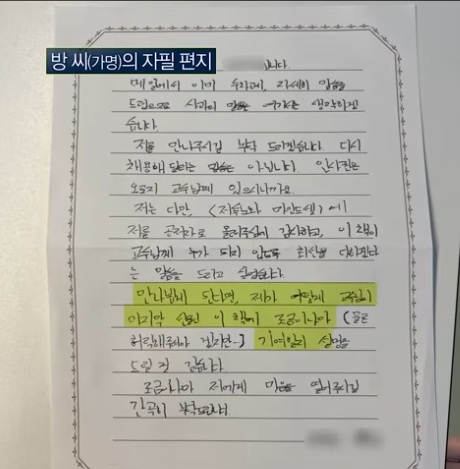 방 씨(가명)의 자필 편지
니다.
메일에서 이미 자세히 말씀
드렸으므로 사과의 말씀은 여기서는 생략하겠
습니다.
저를 만나주시길 부탁 드리겠습니다. 다시
채용해 달라는 말씀은 아닙니다. 인사권은
오로지 교수님께 있으시니까요.
저는 다만, 에
저를 공저자로 올려주심에 감사하고, 이 책이
교수님께 누가 되지 않도록 최선을 다하겠다
는 말씀을 드리고 싶습니다.
만나뵙게 된다면, 제가 어떻게 교수님의
마지막 이 책에 조금이나마 (물론
허락해주셔야 하지만...) 기여할지 설명을
드릴 것 같습니다.
조금이나마 저에게 마음을 열어주시길
간곡히 부탁드립니다.